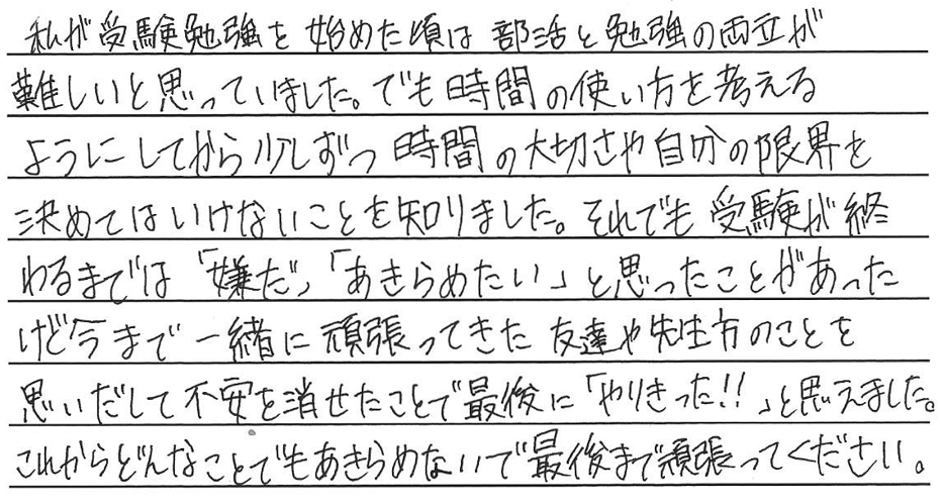 私が受験勉強を始めた頃は部活と勉強の両立が
難しいと思っていました。でも時間の使い方を考える
ようにしてから少しずつ時間の大切さや自分の限界を
決めてはいけないことを知りました。それでも受験が終
わるまでは「嫌だ」「あきらめたい」と思ったことがあった
けど今まで一緒に頑張ってきた友達や先生方のことを
思いだして不安を消せたことで最後に「やりきった!!」と思えました。
これからどんなことでもあきらめないで最後まで頑張ってください。